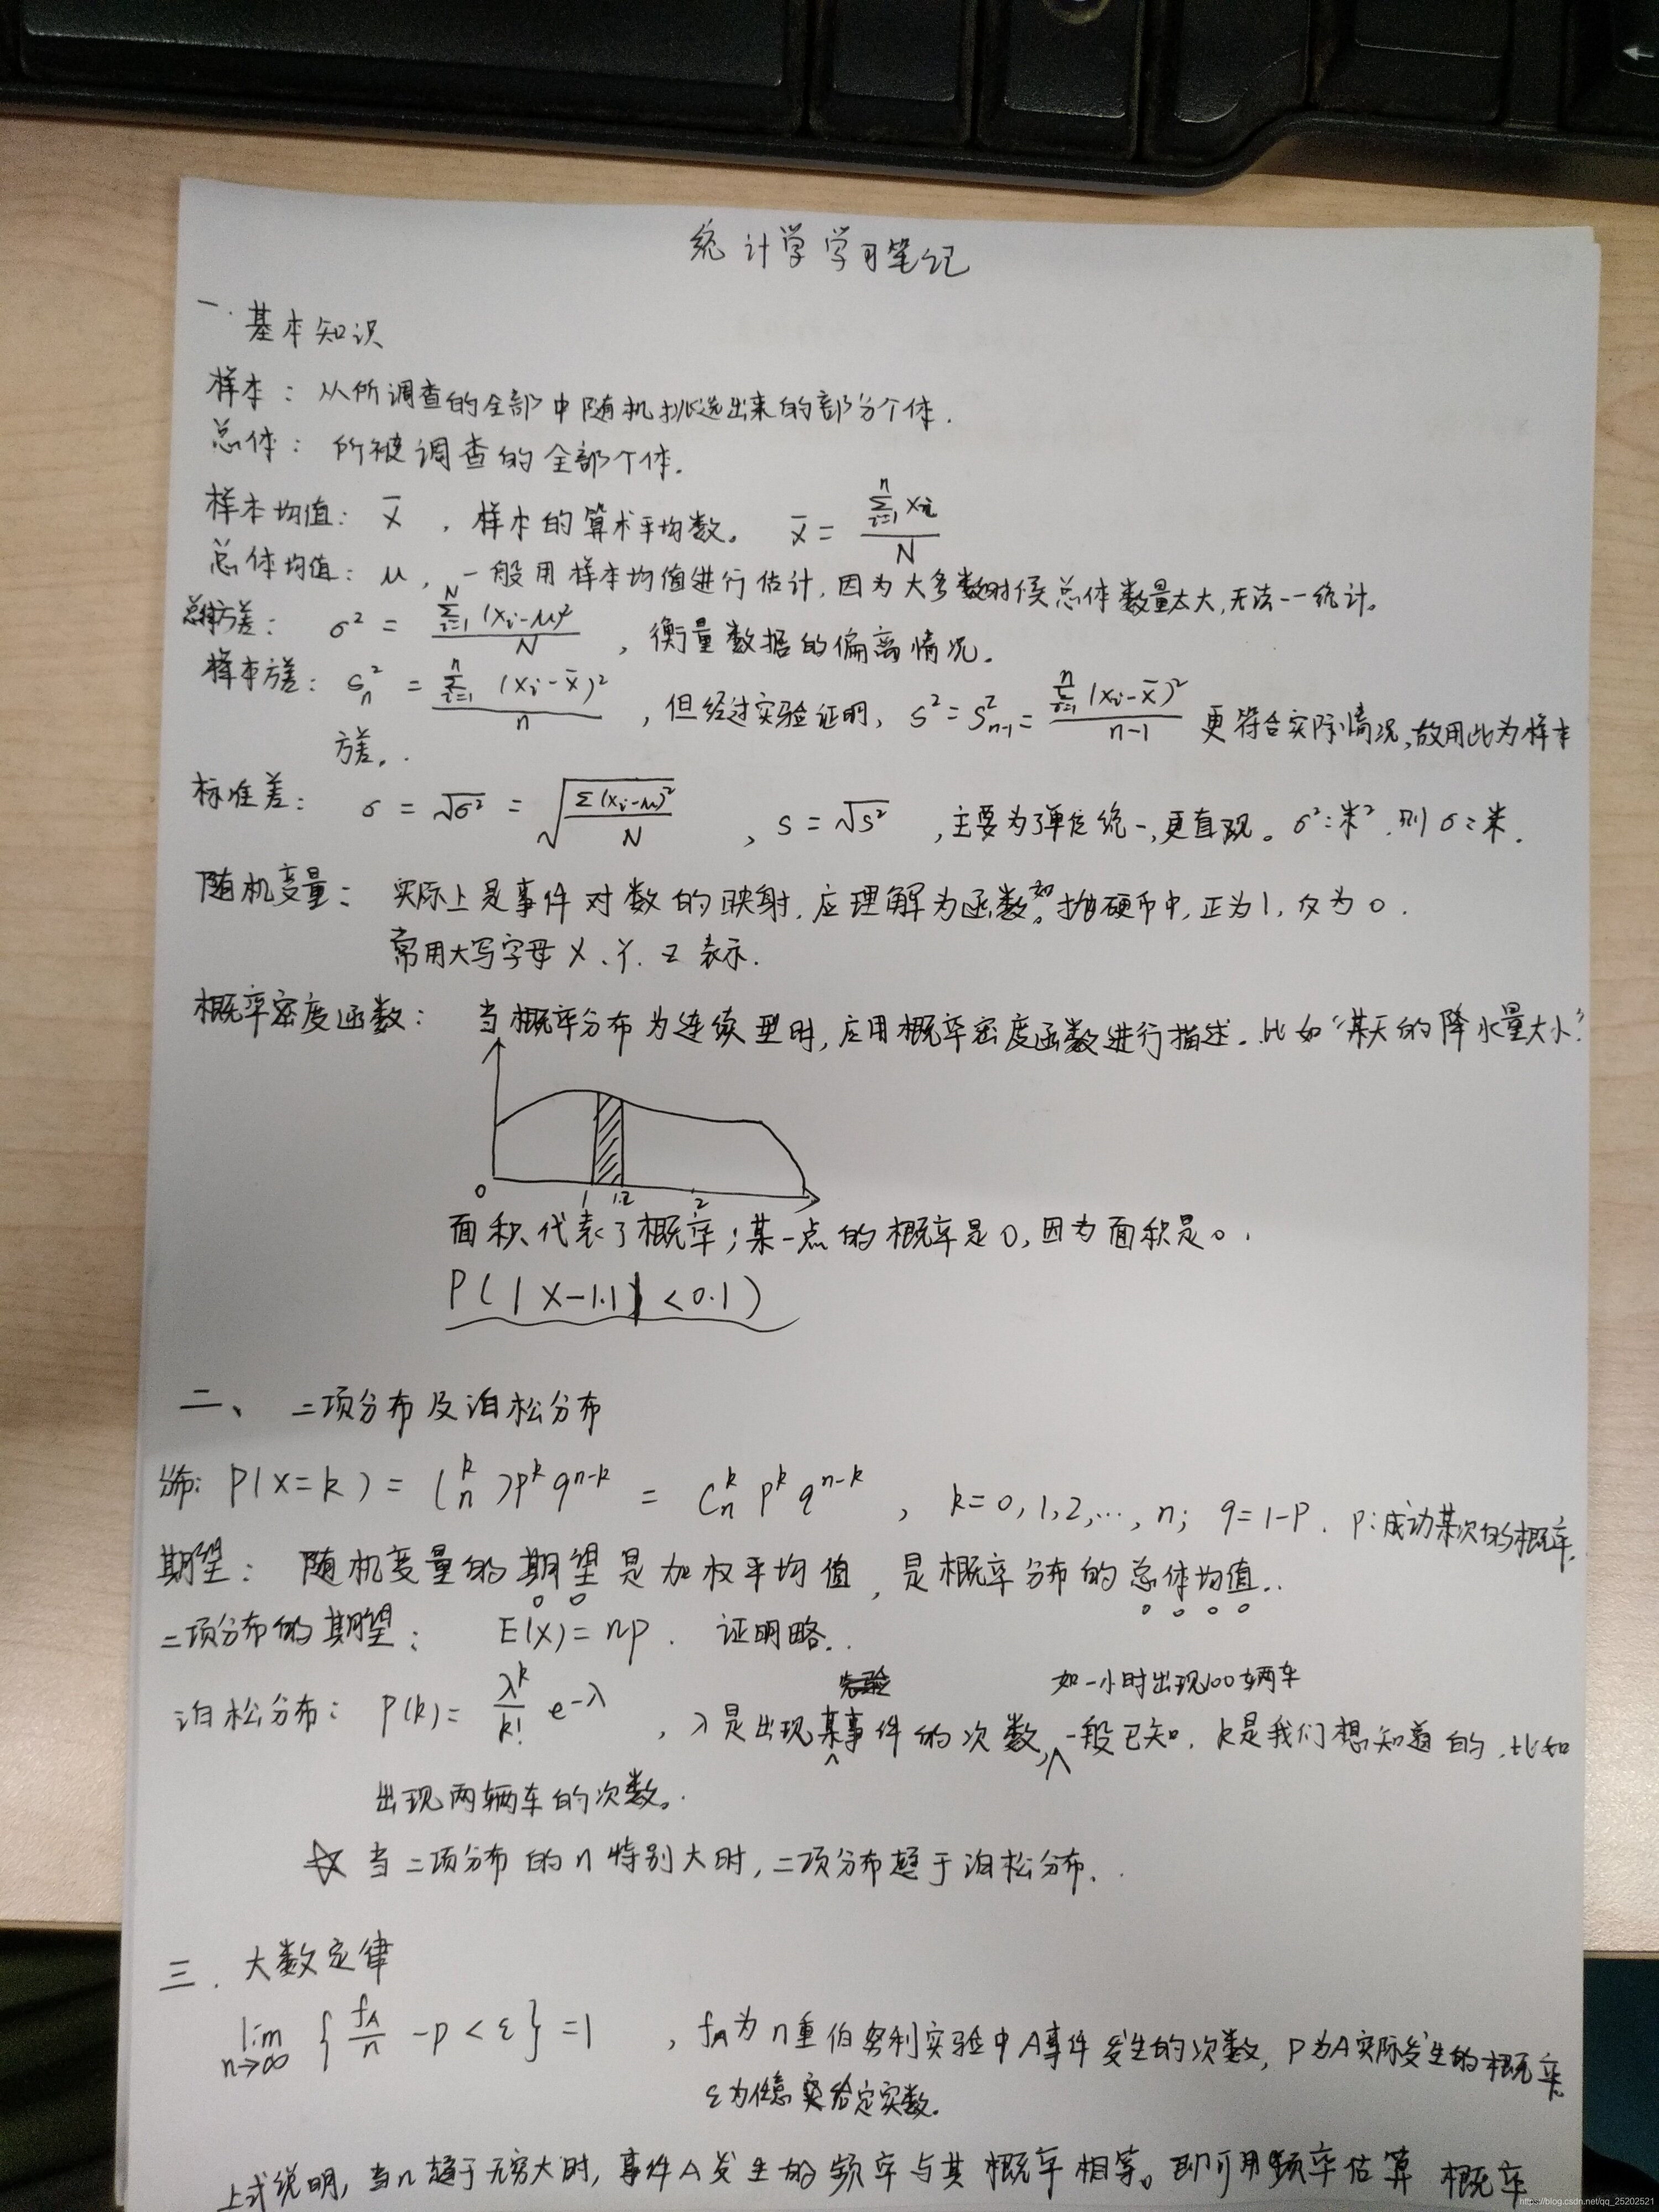 统计学学习笔记
一. 基本知识
样本： 从所调查的全部中随机挑选出来的部分个体.
总体： 所被调查的全部个体.
样本均值： x̄ ，样本的算术平均数。 x̄ = Σ(i=1→n) xi / N
总体均值： μ，一般用样本均值进行估计，因为大多数时候总体数量太大，无法一一统计。
总体方差： σ² = Σ(i=1→N) (xi-μ)² / N ，衡量数据的偏离情况.
样本方差： Sn² = Σ(i=1→n) (xi-x̄)² / n ，但经过实验证明，S² = S²n-1 = Σ(i=1→n) (xi-x̄)² / n-1 更符合实际情况，故用此为样本
方差。.
标准差： σ = √σ² = √(Σ(xi-μ)² / N) ，S = √S² ，主要为了单位统一，更直观。σ²：米²，则 σ：米.
随机变量： 实际上是事件对数的映射，应理解为函数。如抛硬币中，正为1，反为0.
常用大写字母 X、Y、Z 表示.
概率密度函数： 当概率分布为连续型时，应用概率密度函数进行描述. 比如“某天的降水量大小”
0 1 1.2 2
面积代表了概率；某一点的概率是0，因为面积是0.
P(|X-1.1|<0.1)
二、 二项分布及泊松分布
分布： P(X=k) = (k n) p^k q^(n-k) = Cn^k p^k q^(n-k) ， k=0,1,2,…,n; q=1-p. p：成功某次的概率.
期望： 随机变量的期望是加权平均值，是概率分布的总体均值..
二项分布的期望： E(X)=np. 证明略..
如一小时出现100车辆车
泊松分布： P(k) = λ^k / k! e^-λ ，λ是出现某事件的次数，一般已知，k是我们想知道的，比如
出现两辆车的次数。.
☆ 当二项分布的n特别大时，二项分布趋于泊松分布.
三. 大数定律
lim n→∞ { fA/n - p < ε } = 1 ，fA为n重伯努利实验中A事件发生的次数，P为A实际发生的概率.
ε为任意给定实数.
上式说明，当n趋于无穷大时，事件A发生的频率与其概率相等。即可用频率估算概率
https://blog.csdn.net/qq_25202521